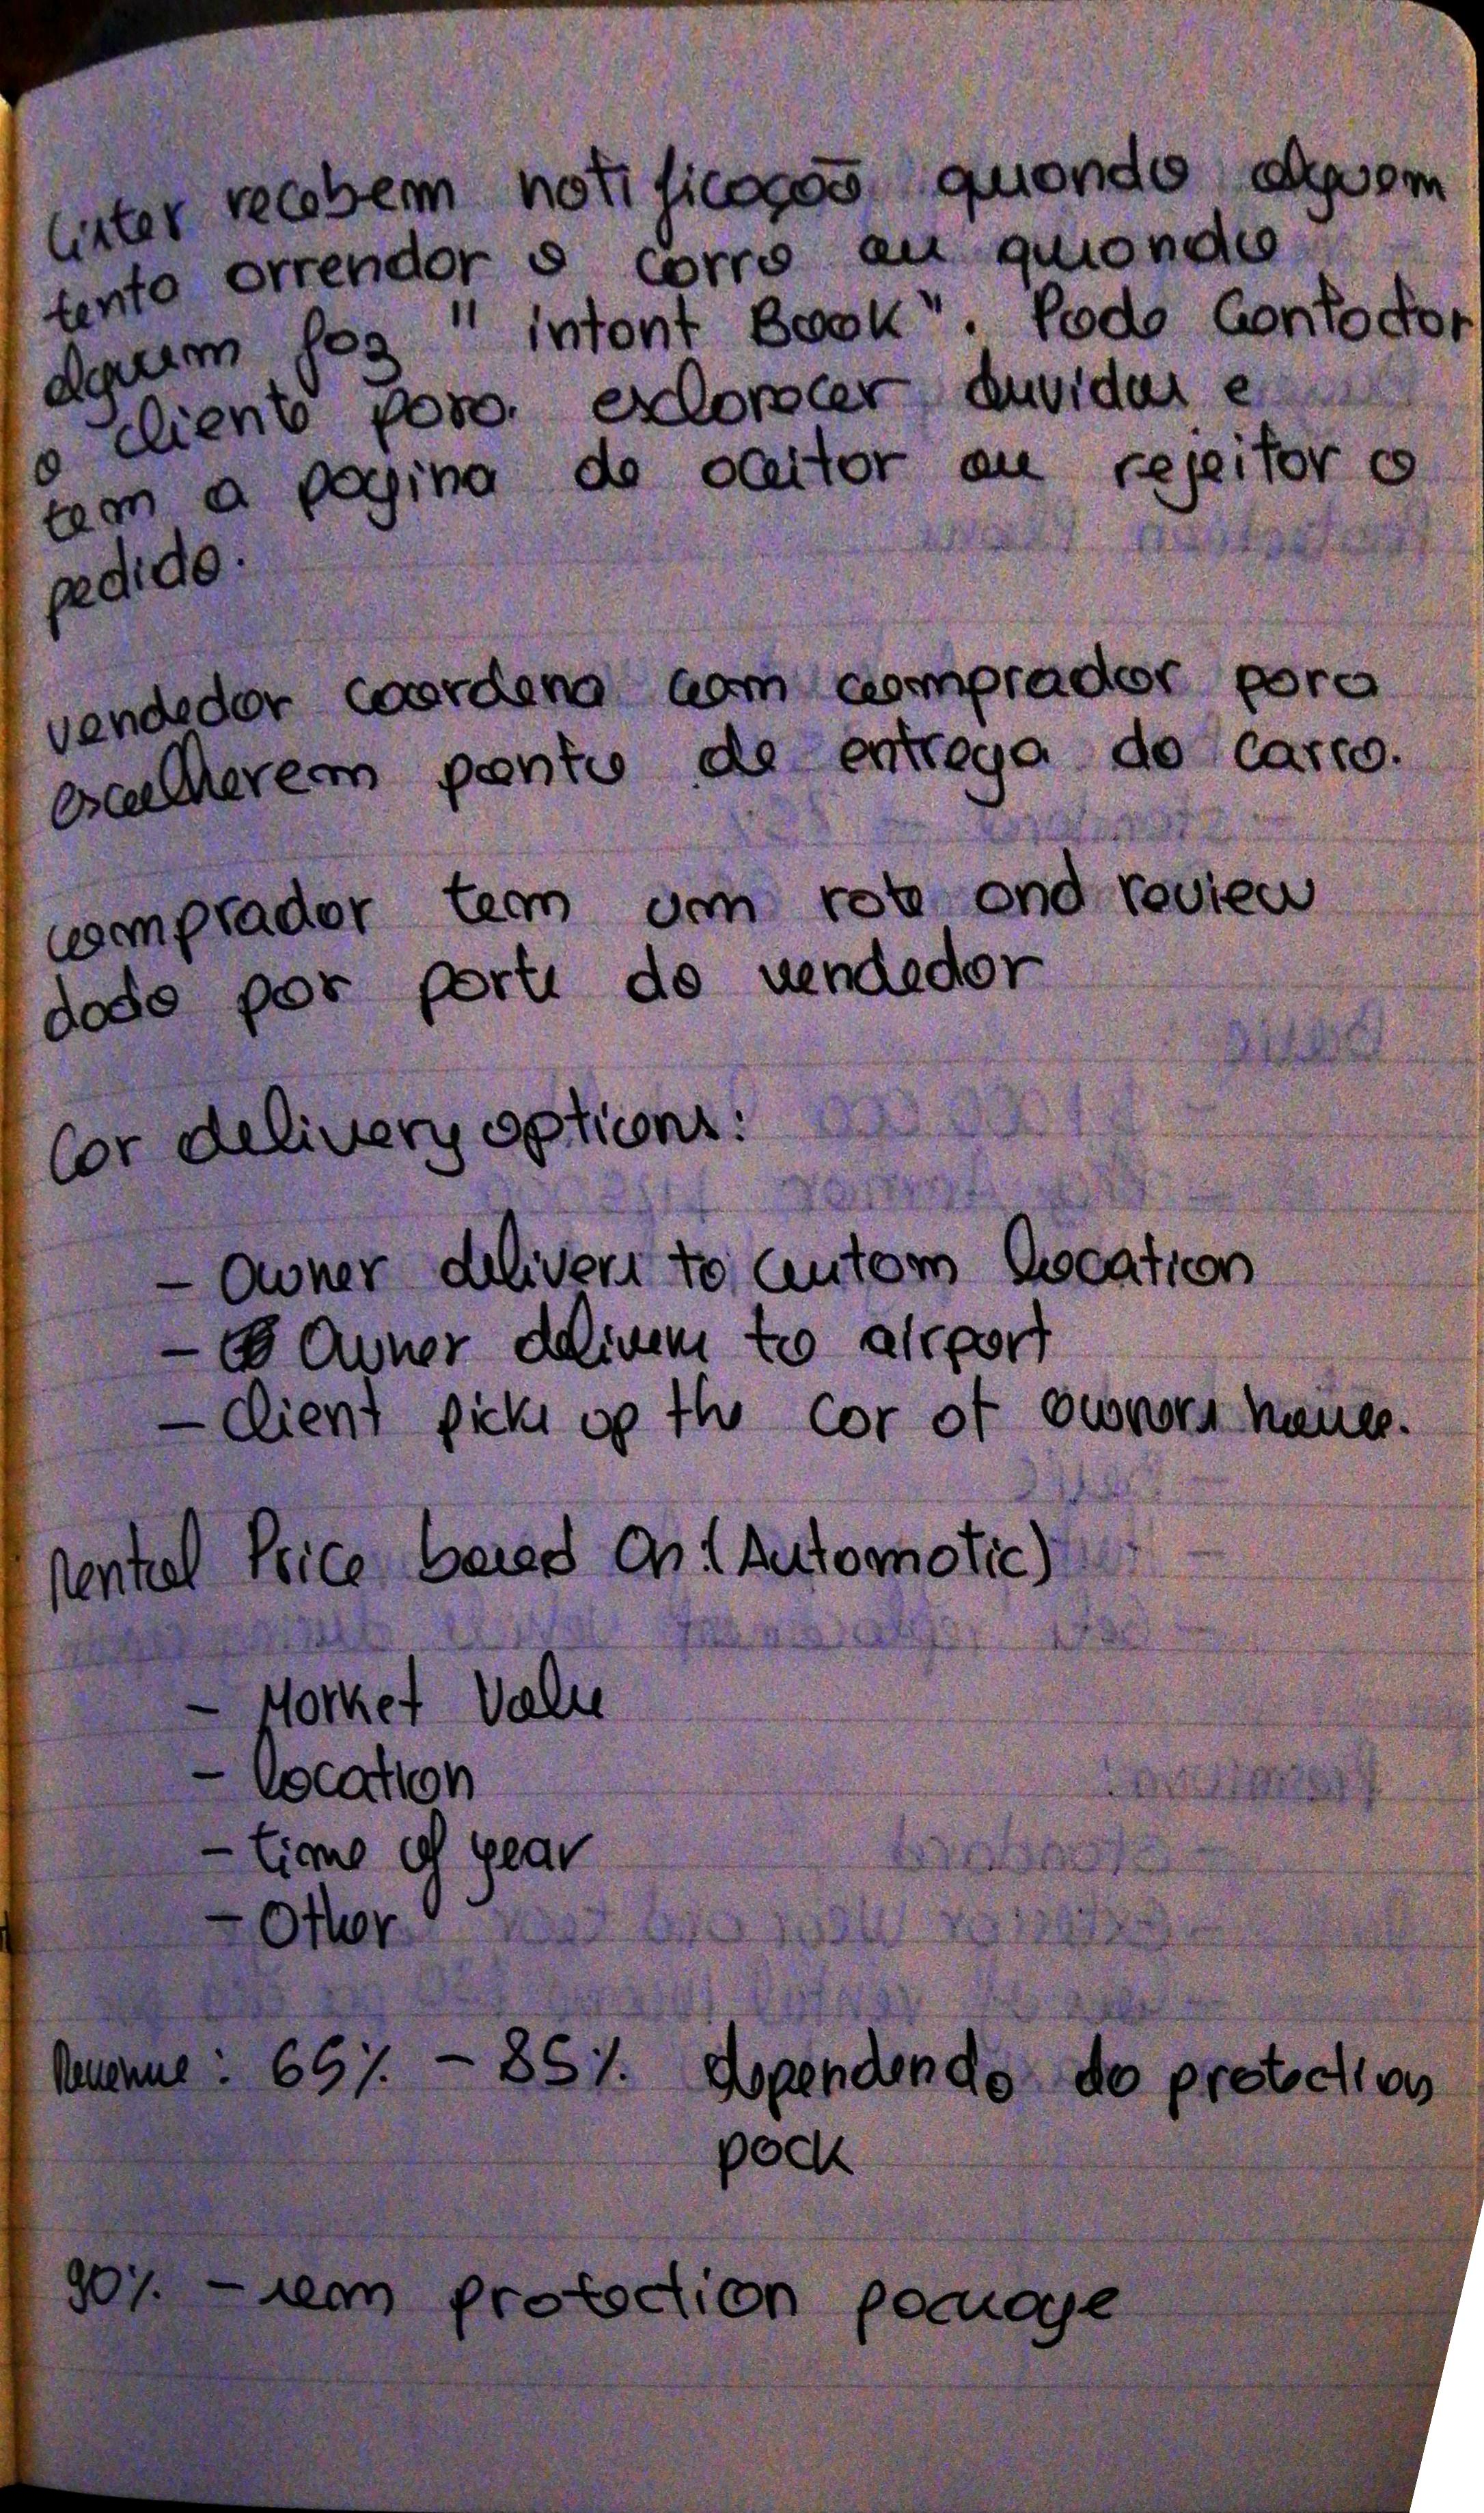 Lister recebem notificação quando alguem
tenta arrendar o carro ou quando
alguem faz " intant Book". Pode Contactar
o cliente para esclarecer duvidas e
tem a pagina de aceitar ou rejeitar o
pedido.
vendedor coordena com comprador para
escolherem ponto de entrega do carro.
comprador tem um rate and review
dado por parte do vendedor
Car delivery options:
- Owner delivers to custom location
- Owner delivers to airport
- Client picks up the car at owners house.
Rental Price based On: (Automatic)
- Market Value
- location
- time of year
- Other
Revenue: 65% - 85% dependendo do protection
pack
90% - sem protection package